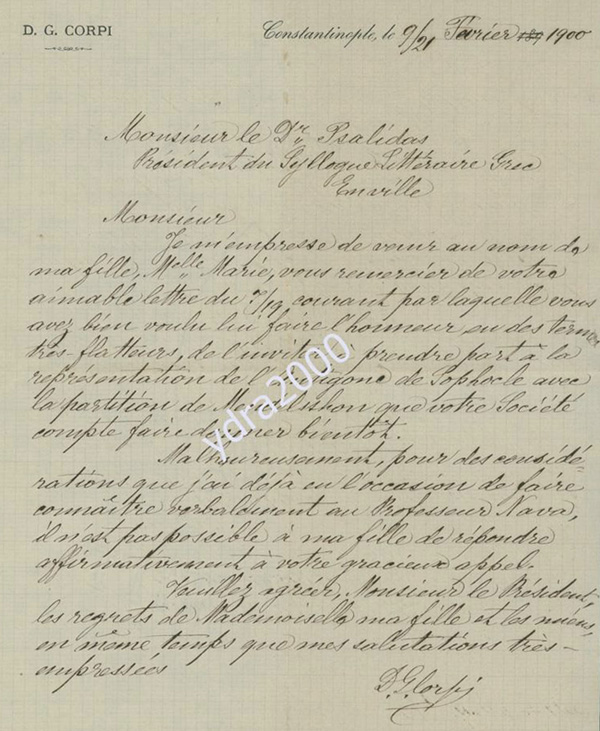 D. G. CORPI
Constantinople, le 9/21 Février 189 1900
Monsieur le Dr. Psalidas
Président du Syllogue Littéraire Grec
En ville
Monsieur
Je m'empresse de venir au nom de
ma fille, Melle Marie, vous remercier de votre
aimable lettre du 7/19 courant par laquelle vous
avez bien voulu lui faire l'honneur, en des termes
très-flatteurs, de l'inviter à prendre part à la
représentation de l'Antigone de Sophocle avec
la partition de que votre Société
compte faire donner bientôt.
Malheureusement, pour des considé-
rations que j'ai déjà eu l'occasion de faire
connaître verbalement au Professeur Nava,
il n'est pas possible à ma fille de répondre
affirmativement à votre gracieux appel.
Veuillez agréer, Monsieur le Président,
les regrets de Mademoiselle ma fille et les miens,
en même temps que mes salutations très-
empressées
D. G. Corpi
ydra2000